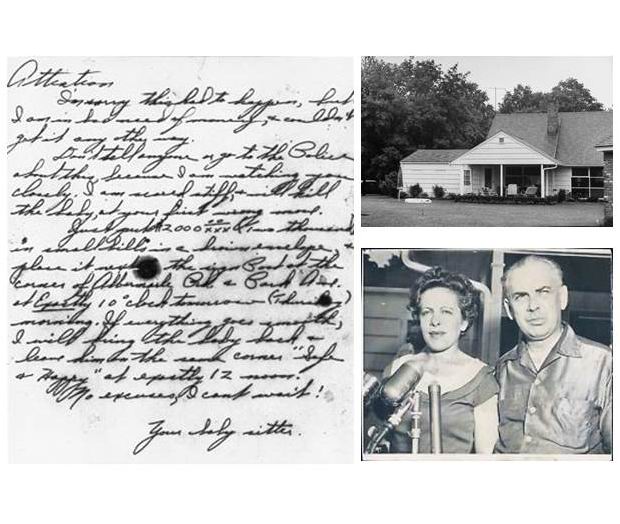 Attention
I'm sorry this had to happen, but
I am in bad need of money, & couldn't
get it any other way.
Don't tell anyone or go to the Police
about this, because I am watching you
closely. I am scared stiff, & will kill
the baby, at your first wrong move.
Just put $2000 00/xxx (two thousand)
in small bills in a brown envelope, &
place it next the sign Post at the
corner of Albemarle Rd. & Park Ave.
at Exactly 10 o'clock tomorrow (Thursday)
morning. If everything goes smooth,
I will bring the baby back, &
leave him on the same corner "Safe
& Happy" at exactly 12 noon.
No excuses, I can't wait!
Your baby sitter.